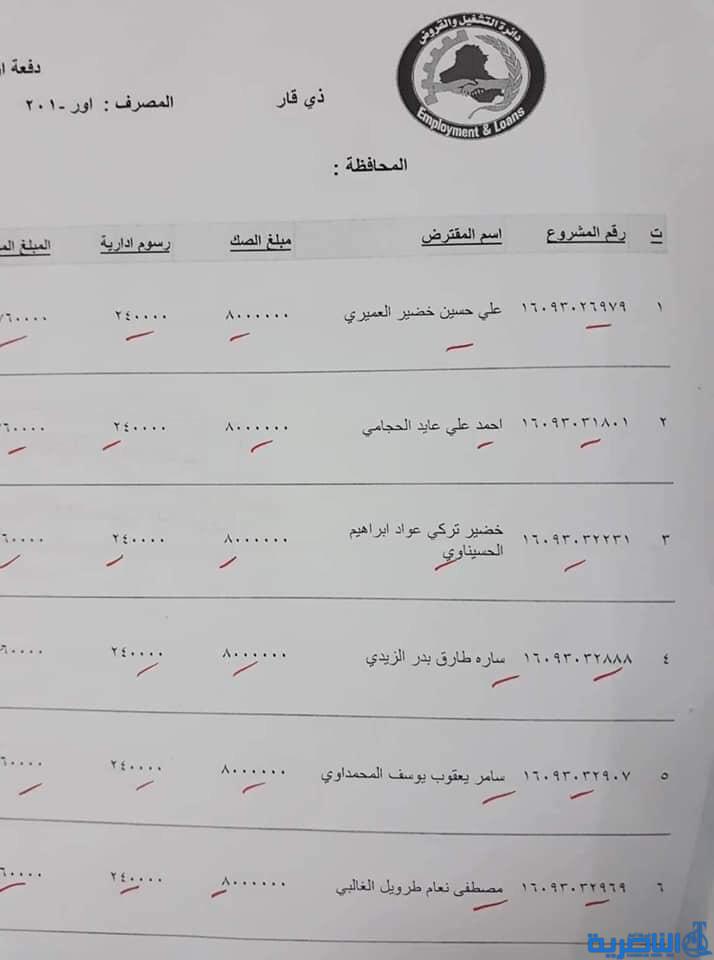 دائرة التشغيل والقروض
Employment & Loans
دفعة
ذي قار
المصرف : اور -٢٠١
المحافظة :
ت رقم المشروع اسم المقترض مبلغ الصك رسوم ادارية المبلغ
١ ١٦٠٩٣٠٢٦٩٧٩ علي حسين خضير العميري ٨٠٠٠٠٠٠ ٢٤٠٠٠٠ ٧٦٠٠٠٠
٢ ١٦٠٩٣٠٣١٨٠١ احمد علي عايد الحجامي ٨٠٠٠٠٠٠ ٢٤٠٠٠٠ ٧٦٠٠٠٠
٣ ١٦٠٩٣٠٣٢٢٣١ خضير تركي عواد ابراهيم الحسيناوي ٨٠٠٠٠٠٠ ٢٤٠٠٠٠ ٦٠٠٠٠
٤ ١٦٠٩٣٠٣٢٨٨٨ ساره طارق بدر الزيدي ٨٠٠٠٠٠٠ ٢٤٠٠٠٠ ٦٠٠٠٠
٥ ١٦٠٩٣٠٣٢٩٠٧ سامر يعقوب يوسف المحمداوي ٨٠٠٠٠٠٠ ٢٤٠٠٠٠ ٦٠٠٠٠
٦ ١٦٠٩٣٠٣٢٩٦٩ مصطفى نعام طرويل الغالبي ٨٠٠٠٠٠٠ ٢٤٠٠٠٠ ٦٠٠٠٠
الناصرية